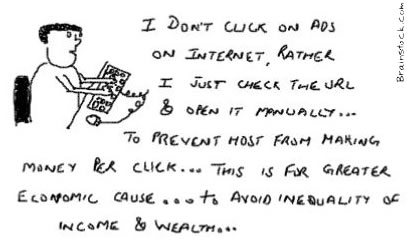 I DON'T CLICK ON ADS
ON INTERNET, RATHER
I JUST CHECK THE URL
& OPEN IT MANUALLY...
TO PREVENT HOST FROM MAKING
MONEY PER CLICK... THIS IS FOR GREATER
ECONOMIC CAUSE... to AVOID INEQUALITY OF
INCOME & WEALTH...
Brainstuck.com